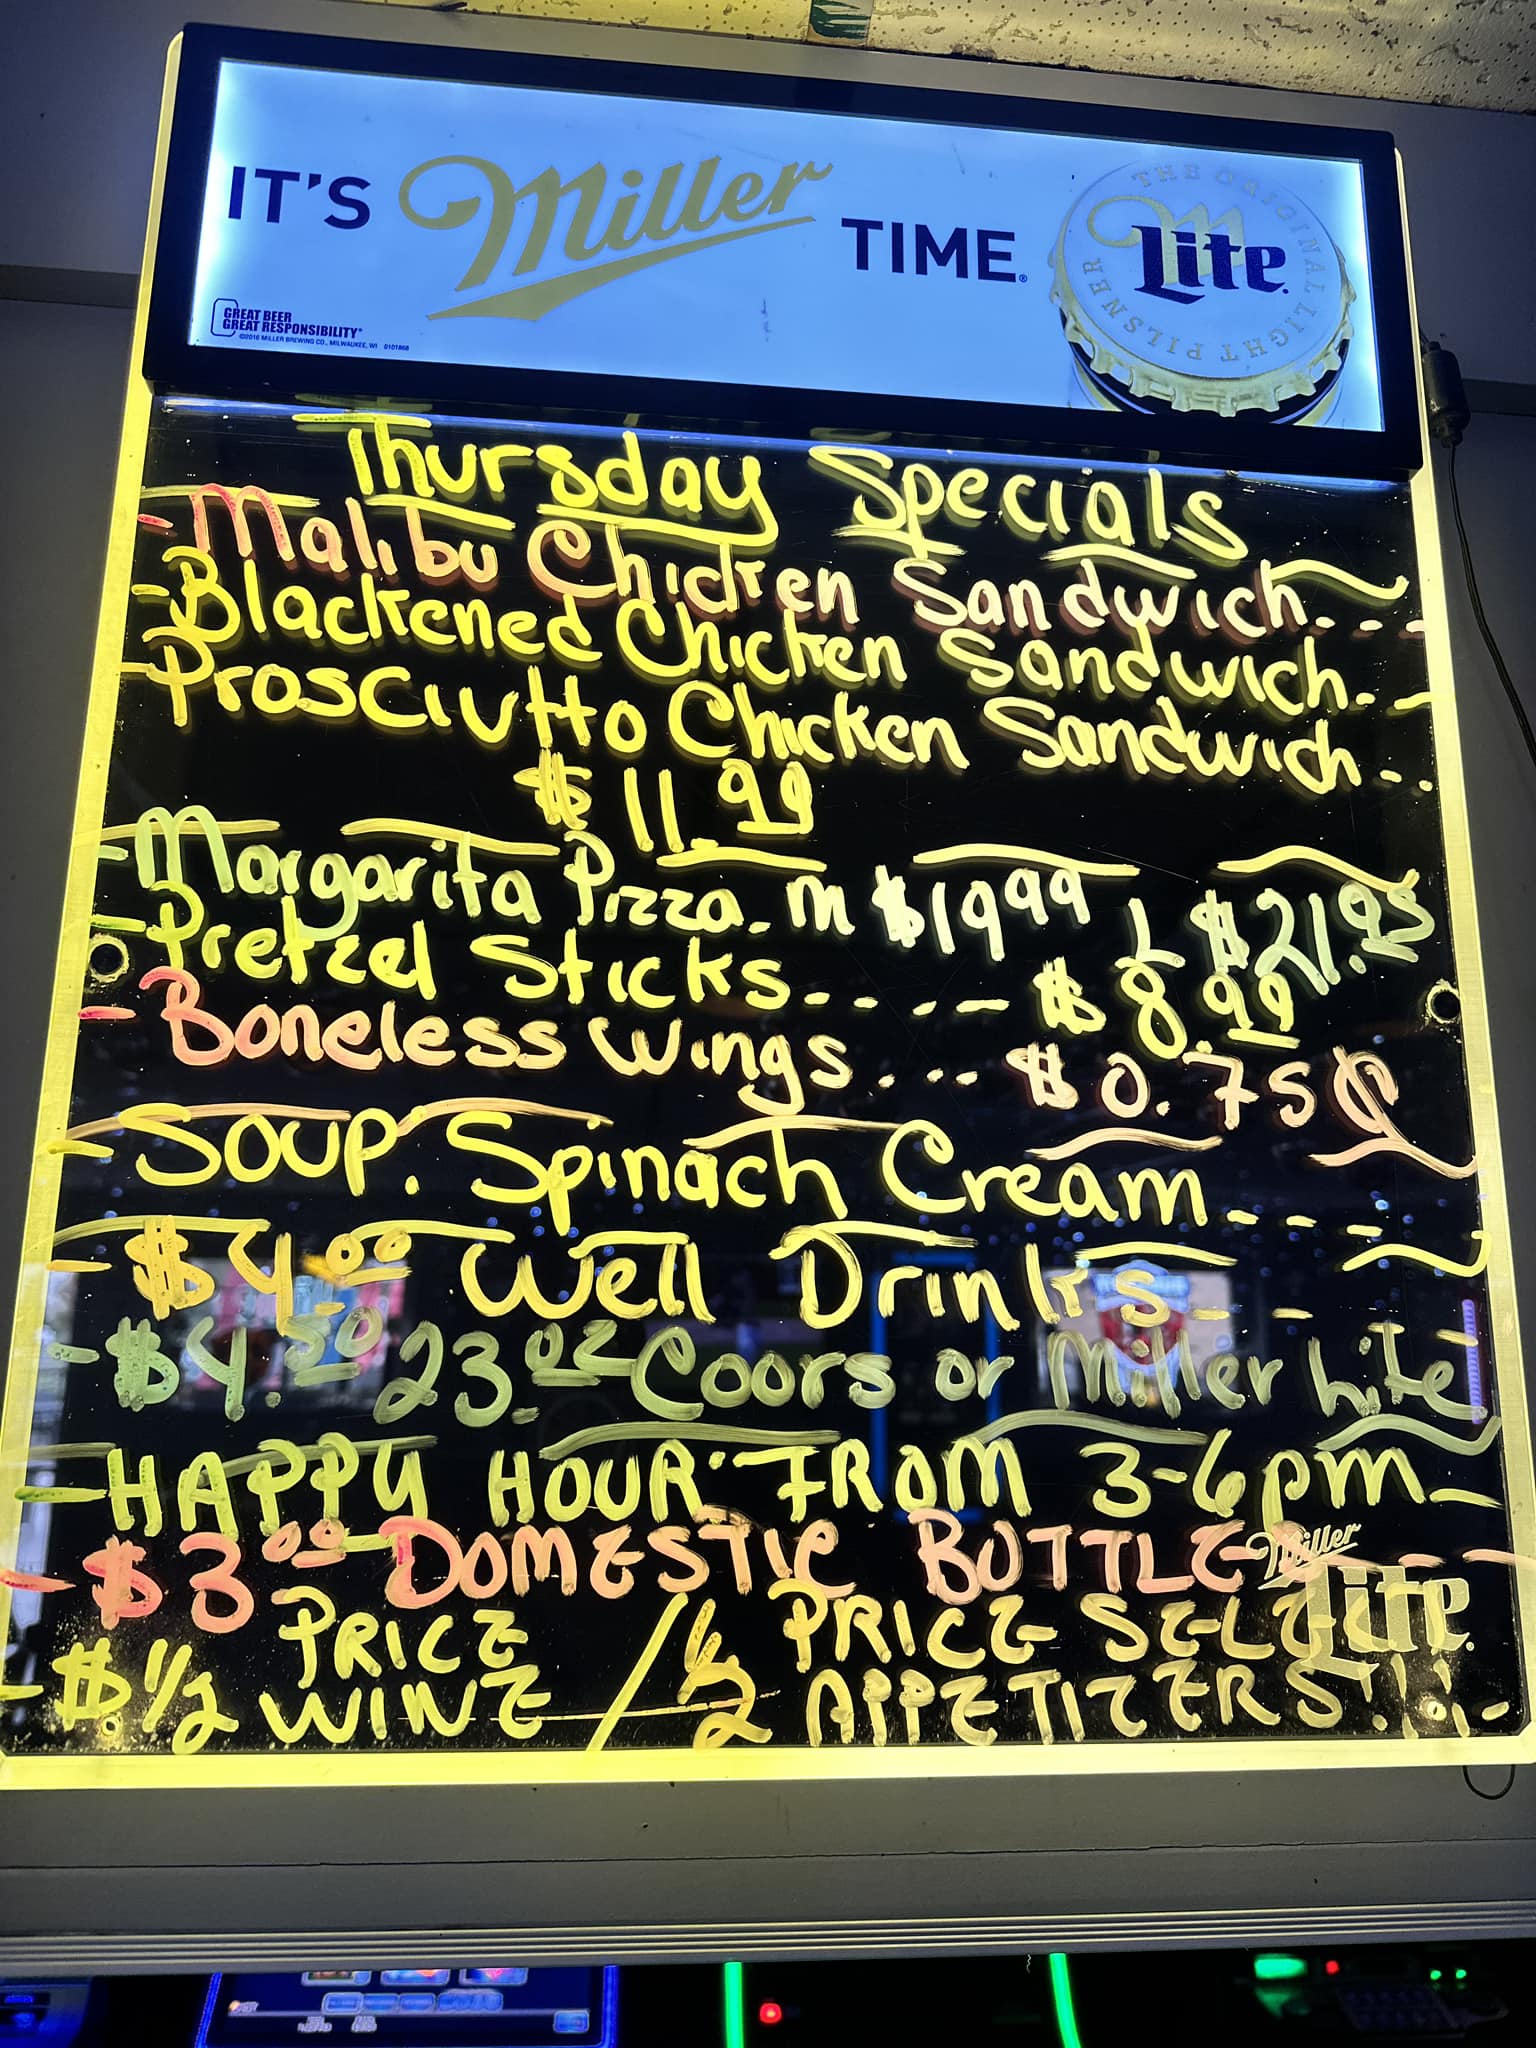 IT'S Miller TIME.®
THE ORIGINAL LIGHT PILSNER
Lite
GREAT BEER
GREAT RESPONSIBILITY®
©2016 MILLER BREWING CO., MILWAUKEE, WI 0101868
Thursday Specials
- Malibu Chicken Sandwich....
- Blackened Chicken Sandwich..-
- Prosciutto Chicken Sandwich...
$11.99
- Margarita Pizza. m $19 99 L $21.95
- Pretzel Sticks....-- $8.99
- Boneless Wings.... $0.75¢
- Soup. Spinach Cream....
- $4.00 Well Drinks...
- $4.50 23.oz Coors or Miller Lite
- HAPPY HOUR: FROM 3-6pm-
- $3.00 - DOMESTIC BOTTLE
Miller Lite
PRICE / PRICE SELECT
- $1/2 WINE / 1/2 APPETIZERS!!!-